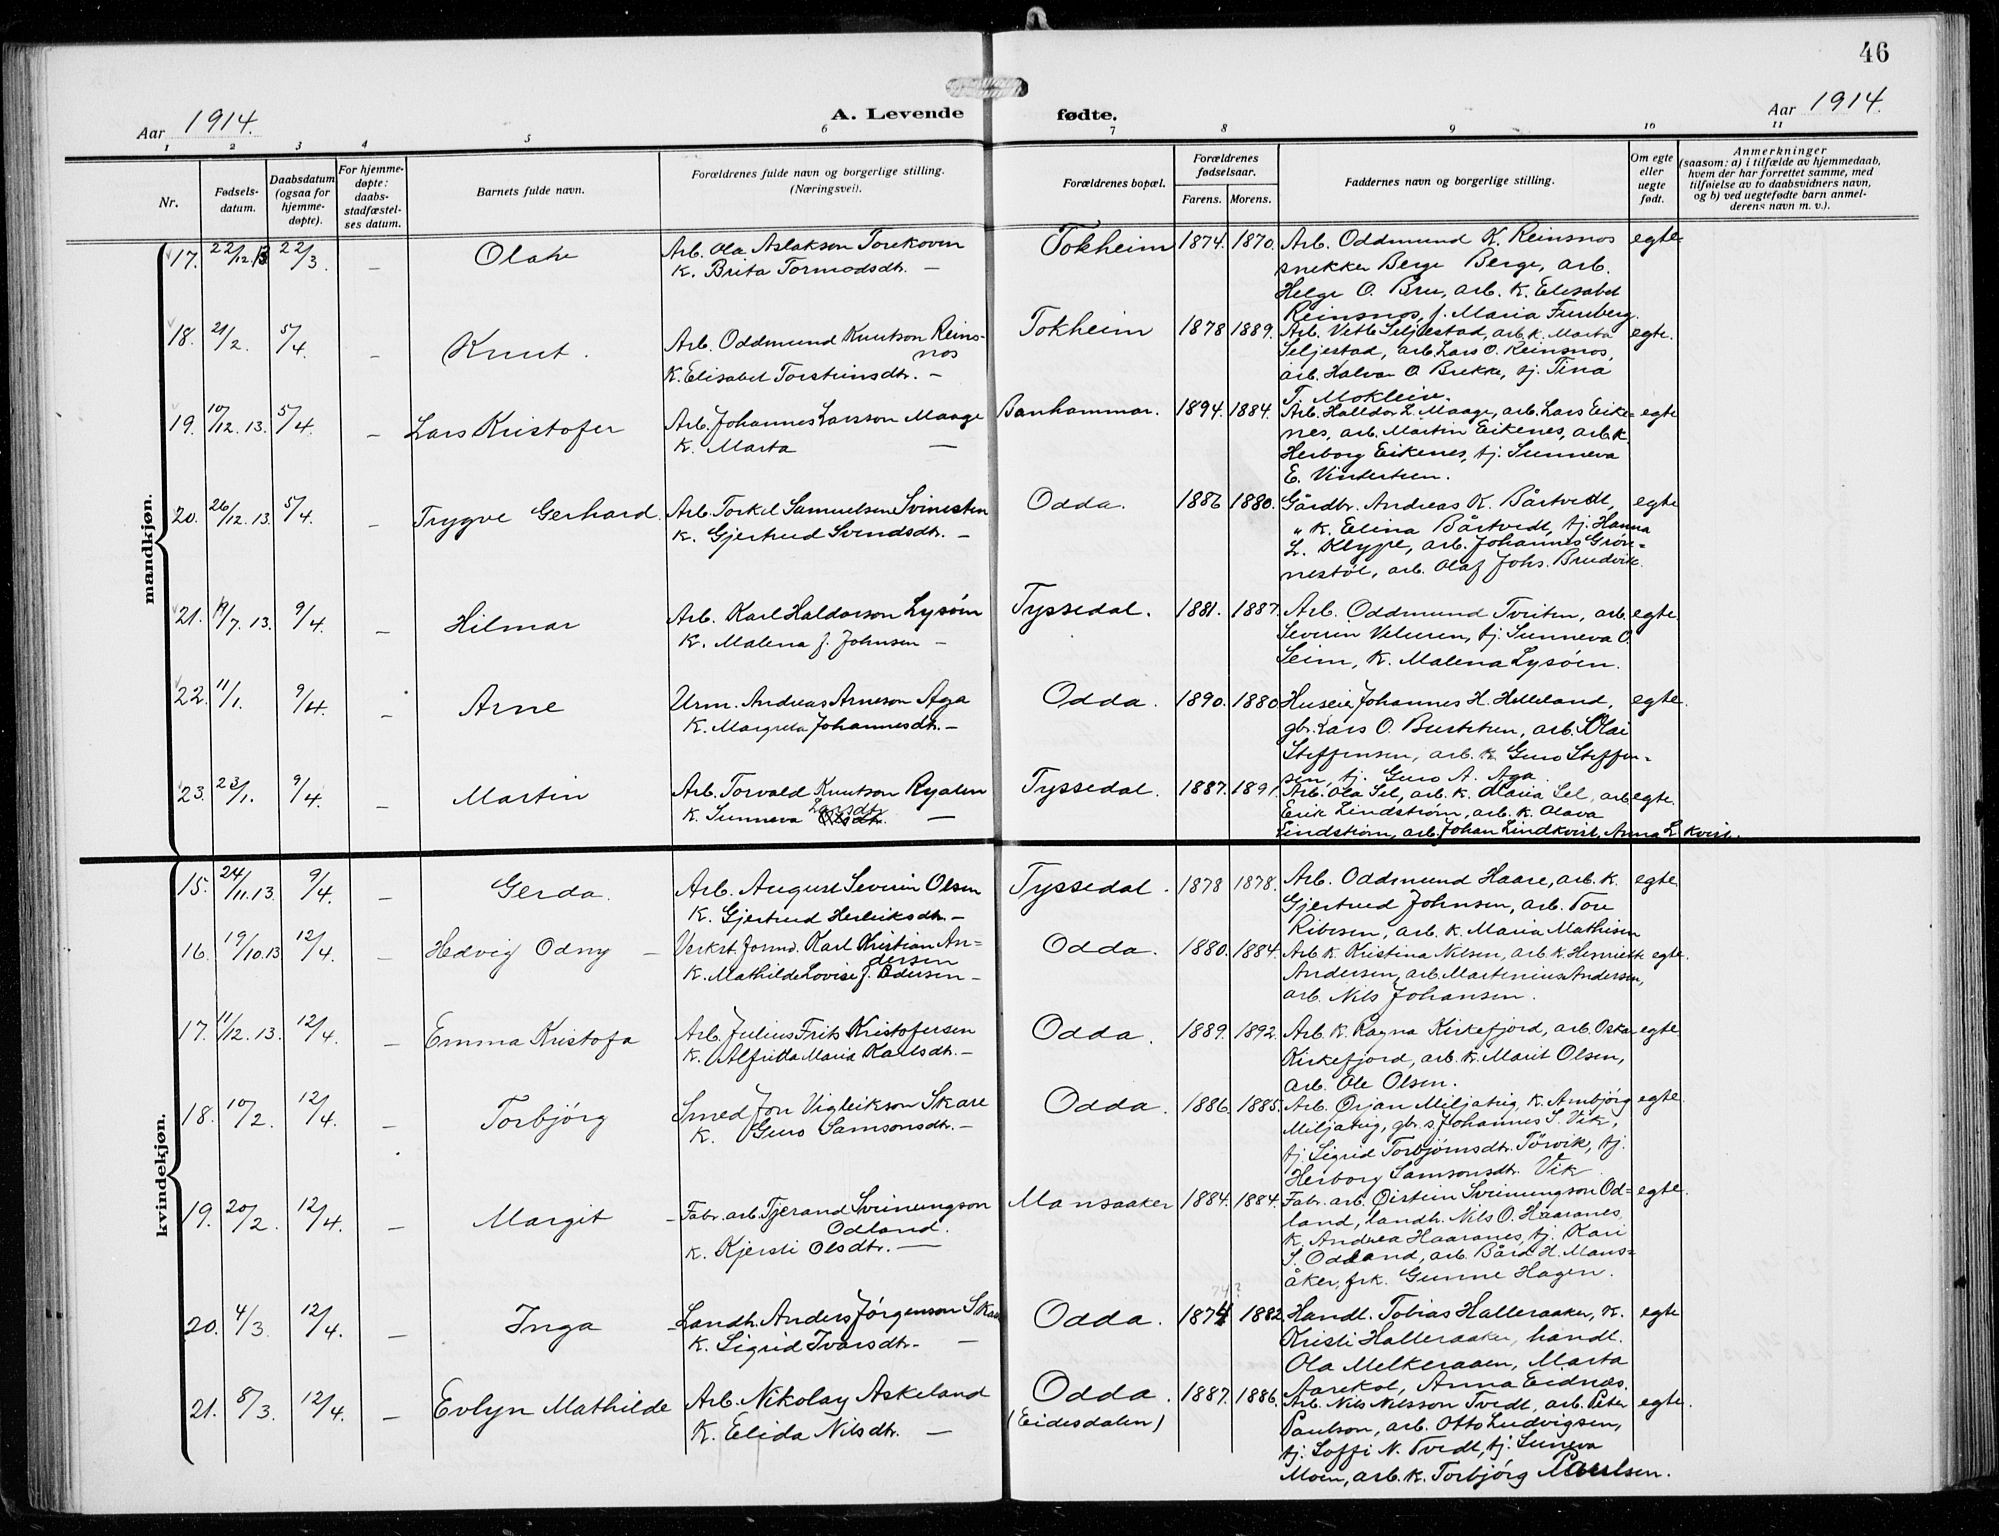 46
Aar 1914.
A. Levende fødte.
Aar 1914.
1 2 3 4 5 6 7 8 9 10 11
Nr.
Fødsels-
datum.
Daabsdatum
(ogsaa for
hjemme-
døpte).
For hjemme-
døpte:
daabs-
stadfæstel-
ses datum.
Barnets fulde navn.
Forældrenes fulde navn og borgerlige stilling.
(Næringsvei).
Forældrenes bopæl.
Forældrenes
fødselsaar.
Farens. Morens.
Faddernes navn og borgerlige stilling.
Om egte
eller
uegte
født.
Anmerkninger
(saasom: a) i tilfælde av hjemmedaab,
hvem der har forrettet samme, med
tilføielse av to daabsvidners navn,
og b) ved uegtefødte barn anmel-
derens navn m. v.).
mandkjøn.
17. 22/12.13 22/3 — Olav Arb. Ola Aslakson Torekoven Tokheim 1874. 1870. Arb. Oddmund K. Reinsnos egte
K. Brita Tormodsdtr. — snekker Berge Berge, arb.
Helge O. Bru, arb. K. Elisabet
Reinsnos, j. Maria Furuberg.
18. 21/2. 5/4. — Knut. Arb. Oddmund Knutson Reins- Tokheim 1878 1889. Arb. Vetle Seljestad, arb. k. Marta egte.
nos Seljestad, arb. Lars O. Reinsnos,
K. Elisabet Torsteinsdtr. — arb. Halvar O. Brekke, tj. Tina
T. Mokleiv.
19. 10/12.13. 5/4. — Lars Kristofer Arb. Johannes Larsson Maage Banhammar. 1894. 1884. Arb. Halldor L. Maage, arb. Lars Eike- egte
K. Marta — nes, arb. Martin Eikenes, arb. k.
Herborg Eikenes, tj. Sunneva
E. Vintertun.
20. 26/12.13. 5/4. — Trygve Gerhard. Arb. Torkel Samuelsen Svinesten Odda. 1886 1880. Gårdbr. Andreas K. Bårtvedt, egte
K. Gjertrud Svendsdtr. — " K. Elina Bårtvedt, tj. Hanna
L. Kleppe, arb. Johannes Grøn-
nestøl, arb. Olaf Johs. Brudvik.
21. 19/7.13. 9/4. — Hilmar Arb. Karl Haldorson Lysøen Tyssedal. 1881. 1887. Arb. Oddmund Tveiten, arb. egte.
K. Malena f. Johnsen — Severin Veluren, tj. Sunneva O.
Seim, K. Malena Lysøen.
22. 11/1. 9/4. — Arne Urm. Andreas Arneson Aga Odda. 1890. 1880 Huseie Johannes H. Helleland, egte.
K. Margreta Johannesdtr. — gbr. Lars O. Bustetun, arb. Olai
Steffensen, arb. k. Guro Steffen-
sen, tj. Guro A. Aga.
23. 23/1. 9/4. — Martin Arb. Torvald Knutson Ryalen Tyssedal. 1887. 1891. Arb. Ola Sel, arb. k. Maria Sel, arb. egte.
Larsdtr.
K. Sunneva Olsdtr. — Erik Lindstrøm, arb. k. Olava
Lindstrøm, arb. Johan Lindkvist, Anna L.kvist.
kvindekjøn.
15. 24/11.13. 9/4. — Gerda. Arb. August Severin Olsen Tyssedal. 1878 1878. Arb. Oddmund Haare, arb. k. egte
K. Gjertrud Henriksdtr. — Gjertrud Johnsen, arb. Tore
Ribesen, arb. k. Maria Mathisen
16. 19/10.13 12/4. — Hedvig Odny — Verkst. formd. Karl Kristian An- Odda. 1880. 1884. Arb. k. Kristina Nilsen, arb. k. Henriette egte.
dersen
K. Mathilde Lovise f. Pedersen — Andersen, arb. Martinius Andersen,
arb. Nils Johansen.
17. 11/12.13. 12/4. — Emma Kristofa Arb. Julius Frits Kristofersen Odda. 1889. 1892. Arb. k. Ragna Kirkefjord, arb. Oskar egte.
K. Alfritta Maria Karlsdtr. — Kirkefjord, arb. k. Marit Olsen,
arb. Ole Olsen.
18. 10/2. 12/4. — Torbjörg Smed Jon Vigleikson Skare Odda. 1886 1885. Arb. Ørjan Miljateig, K. Ambjörg egte.
K. Guro Samsonsdtr. — Miljateig, gbr. s. Johannes S. Vik,
tj. Sigrid Torbjørnsdtr. Törvik, tj.
Herborg Samsonsdtr. Vik.
19. 20/2. 12/4. — Margit — Fabr. arb. Tjerand Sveinungson Mansaaker 1884. 1884. Fabr. arb. Øistein Sveinungson Od- egte.
Odland. land, landh. Nils O. Haaranes,
K. Kjersti Olsdtr. — K. Andrea Haaranes, tj. Kari
S. Odland, arb. Bård H. Mans-
åker, frk. Gunne Hagen.
74?
20. 4/3. 12/4. — Inga — Landh. Anders Jørgenson Skare Odda. 1874 1882 Handl. Tobias Halleraaker, K. egte
K. Sigrid Ivarsdtr. — Kristi Halleraaker, handl.
Ola Melkeraaen, Marta
Aarekol, Anna Eidnæs.
21. 8/3. 12/4. — Evlyn Mathilde Arb. Nikolay Askeland Odda. 1887. 1886. Arb. Nils Nilsson Tvedt, arb. Peter egte.
K. Elida Nilsdtr. — (Eidesdalen) Paulson, arb. Otto Ludvigsen,
tj. Soffi N. Tvedt, tj. Suneva
Moen, arb. k. Torbjörg Paulsen.